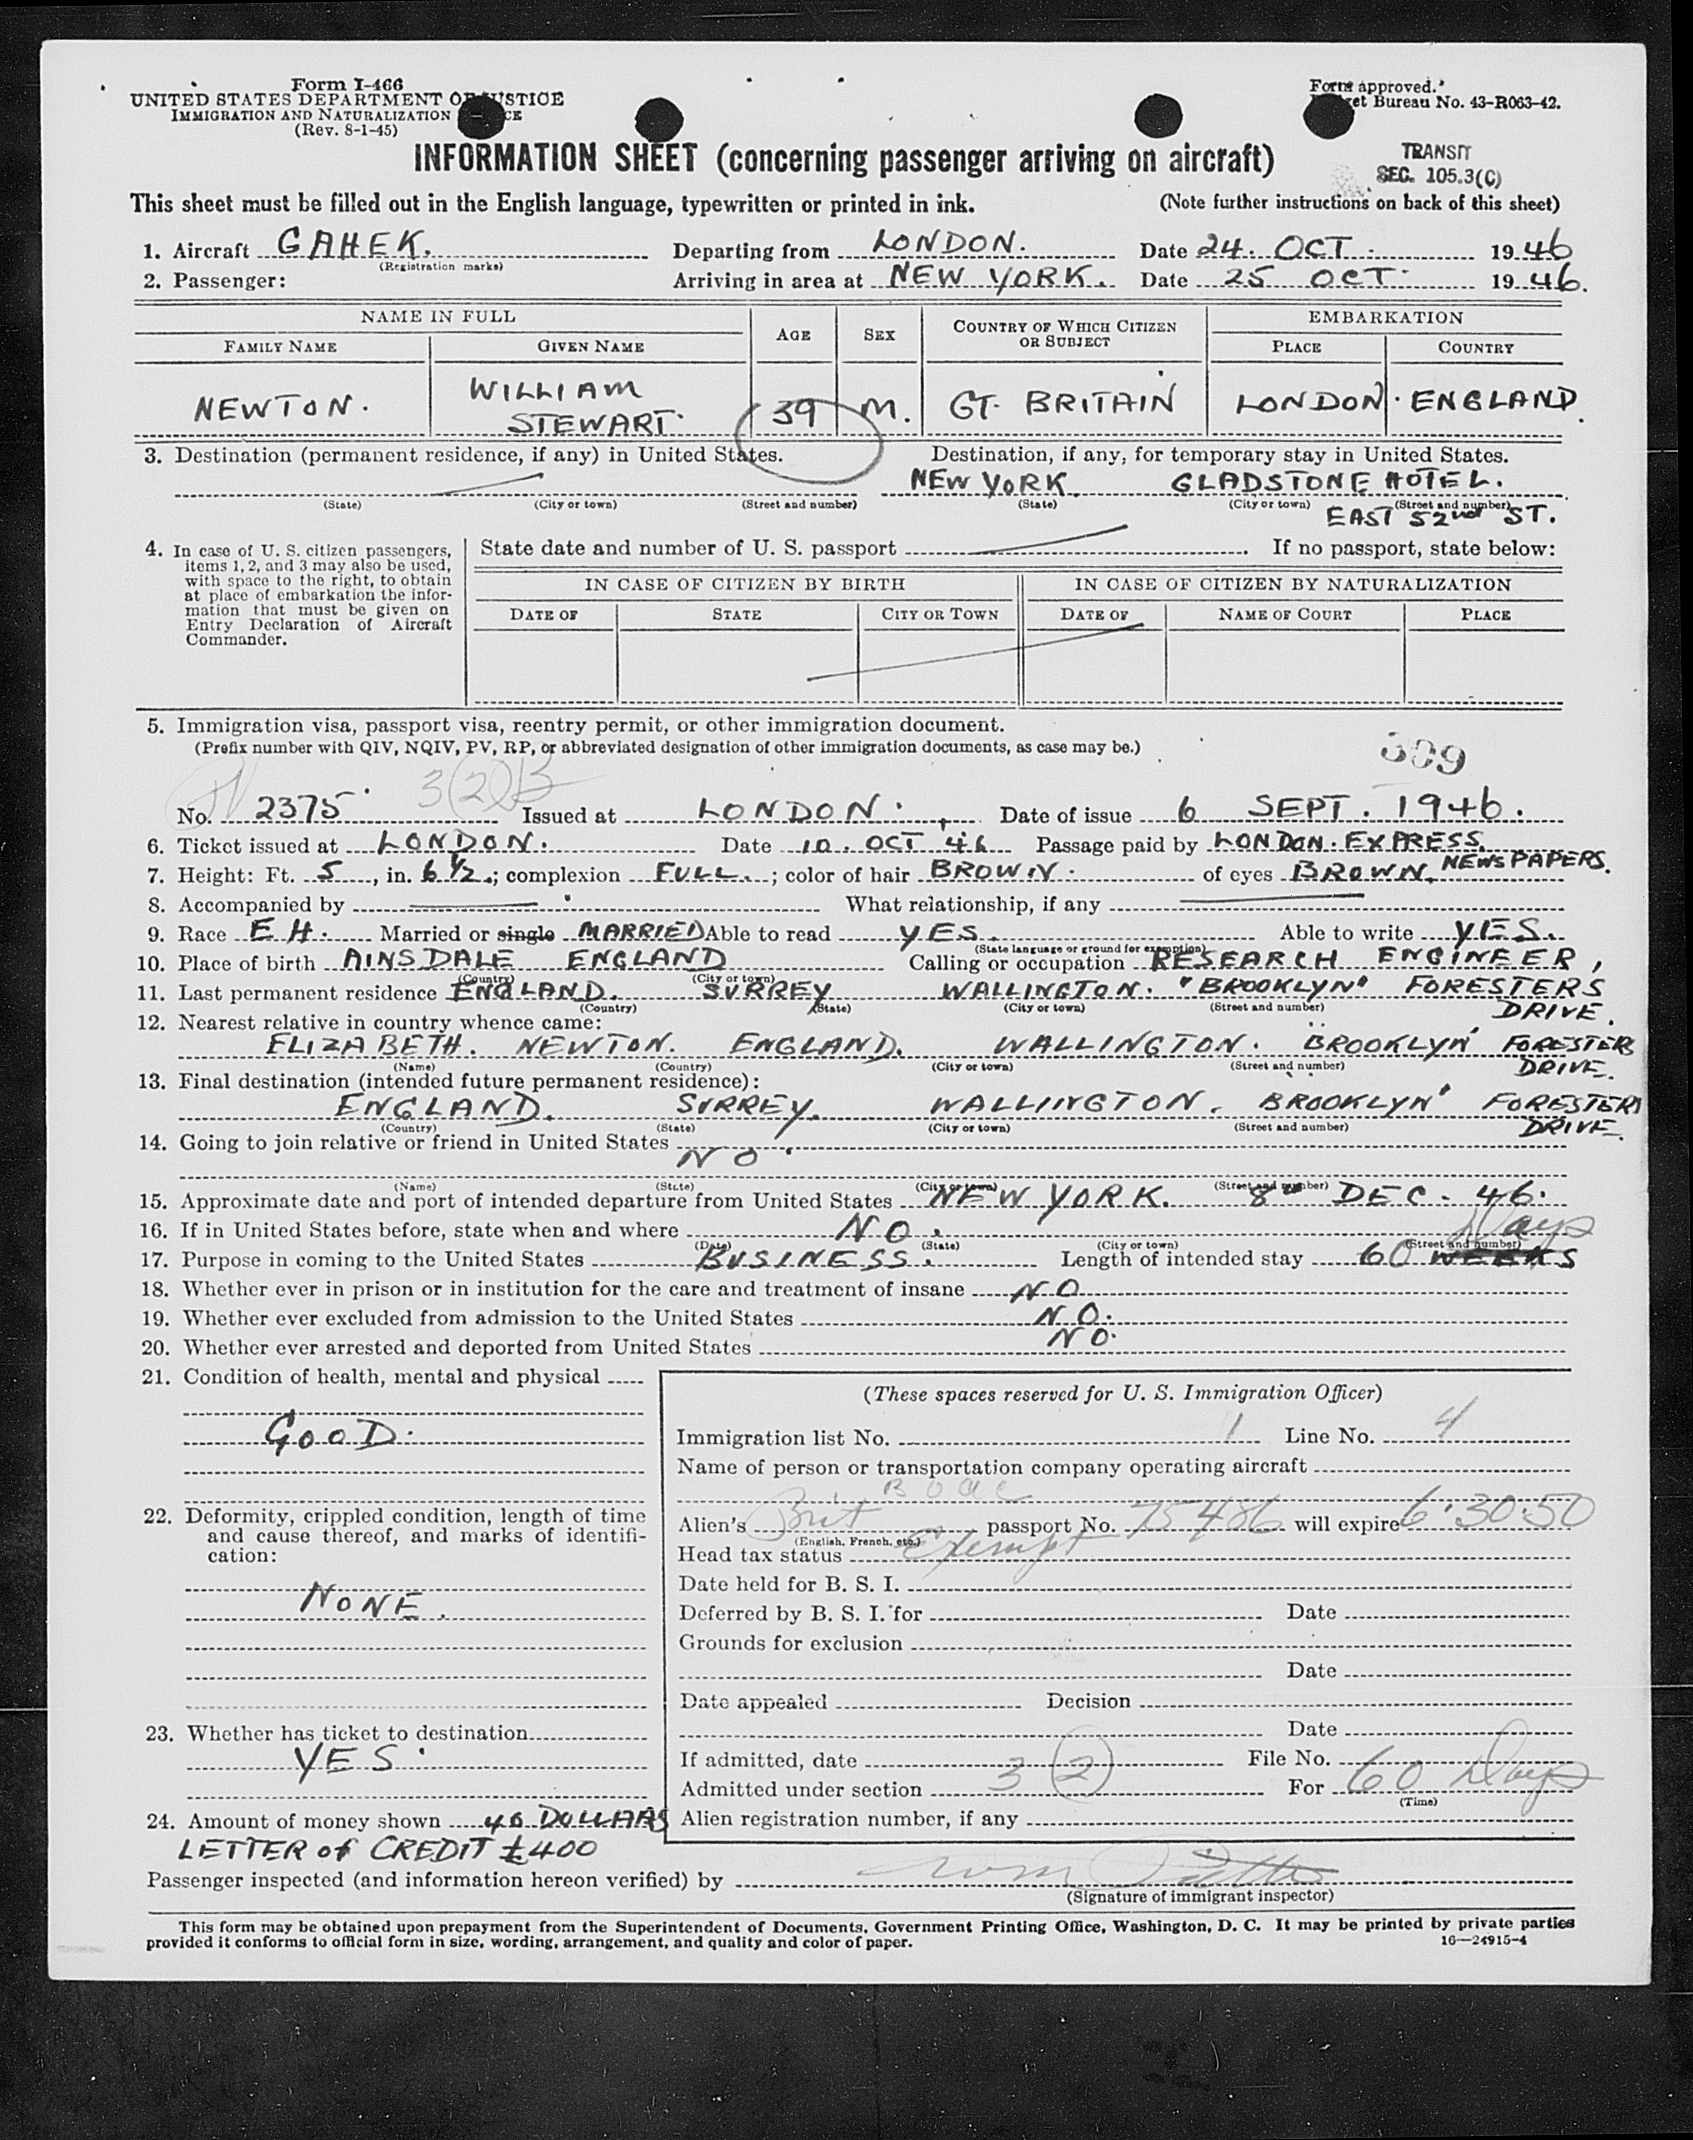 Form I-466
UNITED STATES DEPARTMENT OF JUSTICE
IMMIGRATION AND NATURALIZATION
(Rev. 8-1-45)
Form approved.
Bureau No. 43-R063-42.
INFORMATION SHEET (concerning passenger arriving on aircraft)
TRANSIT
SEC. 105.3(C)
This sheet must be filled out in the English language, typewritten or printed in ink. (Note further instructions on back of this sheet)
1. Aircraft GAHEK. Departing from LONDON. Date 24. OCT. 1946
(Registration marks)
2. Passenger: Arriving in area at NEW YORK. Date 25 OCT. 1946.
NAME IN FULL AGE SEX COUNTRY OF WHICH CITIZEN OR SUBJECT EMBARKATION
FAMILY NAME GIVEN NAME PLACE COUNTRY
NEWTON. WILLIAM STEWART. 39 M. GT. BRITAIN LONDON. ENGLAND.
3. Destination (permanent residence, if any) in United States. Destination, if any, for temporary stay in United States.
NEW YORK. GLADSTONE HOTEL.
(State) (City or town) (Street and number) (State) (City or town) (Street and number)
EAST 52nd ST.
4. In case of U. S. citizen passengers, items 1, 2, and 3 may also be used, with space to the right, to obtain at place of embarkation the information that must be given on Entry Declaration of Aircraft Commander.
State date and number of U. S. passport If no passport, state below:
IN CASE OF CITIZEN BY BIRTH IN CASE OF CITIZEN BY NATURALIZATION
DATE OF STATE CITY OR TOWN DATE OF NAME OF COURT PLACE
5. Immigration visa, passport visa, reentry permit, or other immigration document.
(Prefix number with QIV, NQIV, PV, RP, or abbreviated designation of other immigration documents, as case may be.)
309
3(2)B
No. 2375 Issued at LONDON. Date of issue 6 SEPT. 1946.
6. Ticket issued at LONDON. Date 10. OCT 46 Passage paid by LONDON. EXPRESS. NEWSPAPERS.
7. Height: Ft. 5, in. 6½.; complexion FULL.; color of hair BROWN. of eyes BROWN.
8. Accompanied by What relationship, if any
9. Race EH. Married or single MARRIED Able to read YES. Able to write YES.
(State language or ground for exemption)
10. Place of birth AINSDALE ENGLAND Calling or occupation RESEARCH ENGINEER,
(Country) (City or town)
11. Last permanent residence ENGLAND. SURREY WALLINGTON. "BROOKLYN" FORESTERS DRIVE.
(Country) (State) (City or town) (Street and number)
12. Nearest relative in country whence came:
ELIZABETH. NEWTON. ENGLAND. WALLINGTON. "BROOKLYN" FORESTERS DRIVE.
(Name) (Country) (City or town) (Street and number)
13. Final destination (intended future permanent residence):
ENGLAND. SURREY. WALLINGTON. "BROOKLYN" FORESTERS DRIVE.
(Country) (State) (City or town) (Street and number)
14. Going to join relative or friend in United States NO.
(Name) (State) (City or town) (Street and number)
15. Approximate date and port of intended departure from United States NEW YORK. 8th DEC. 46.
16. If in United States before, state when and where NO.
(Date) (State) (City or town) (Street and number)
17. Purpose in coming to the United States BUSINESS. Length of intended stay 60 WEEKS Days
18. Whether ever in prison or in institution for the care and treatment of insane NO
19. Whether ever excluded from admission to the United States NO.
20. Whether ever arrested and deported from United States NO.
21. Condition of health, mental and physical
GOOD.
22. Deformity, crippled condition, length of time and cause thereof, and marks of identification:
NONE.
23. Whether has ticket to destination
YES.
24. Amount of money shown 40 DOLLARS
LETTER of CREDIT £400
(These spaces reserved for U. S. Immigration Officer)
Immigration list No. 1 Line No. 4
Name of person or transportation company operating aircraft
BOAC
Alien's Brit passport No. 75486 will expire 6.30.50
(English, French, etc.)
Head tax status Exempt
Date held for B. S. I.
Deferred by B. S. I. for Date
Grounds for exclusion
Date
Date appealed Decision
Date
If admitted, date File No.
Admitted under section 3(2) For 60 Days
(Time)
Alien registration number, if any
Passenger inspected (and information hereon verified) by
(Signature of immigrant inspector)
This form may be obtained upon prepayment from the Superintendent of Documents, Government Printing Office, Washington, D. C. It may be printed by private parties
provided it conforms to official form in size, wording, arrangement, and quality and color of paper. 16—24915-4